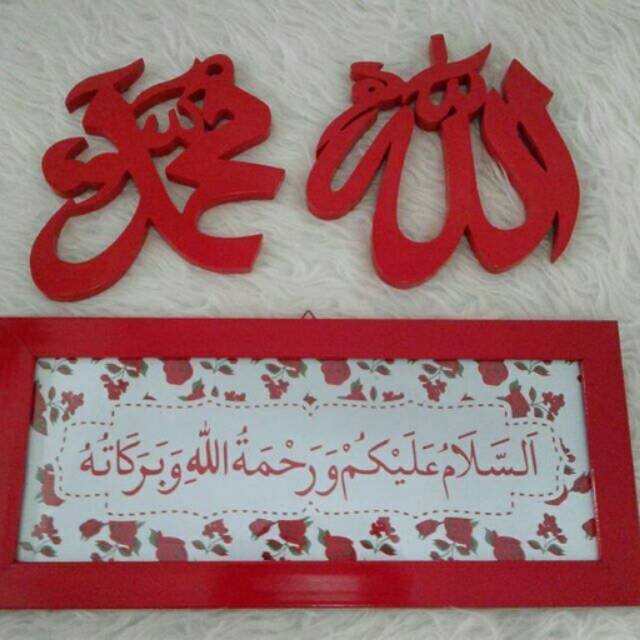 الله
محمد
اَلسَّلَامُ عَلَيْكُمْ وَرَحْمَةُ اللهِ وَبَرَكَاتُهُ